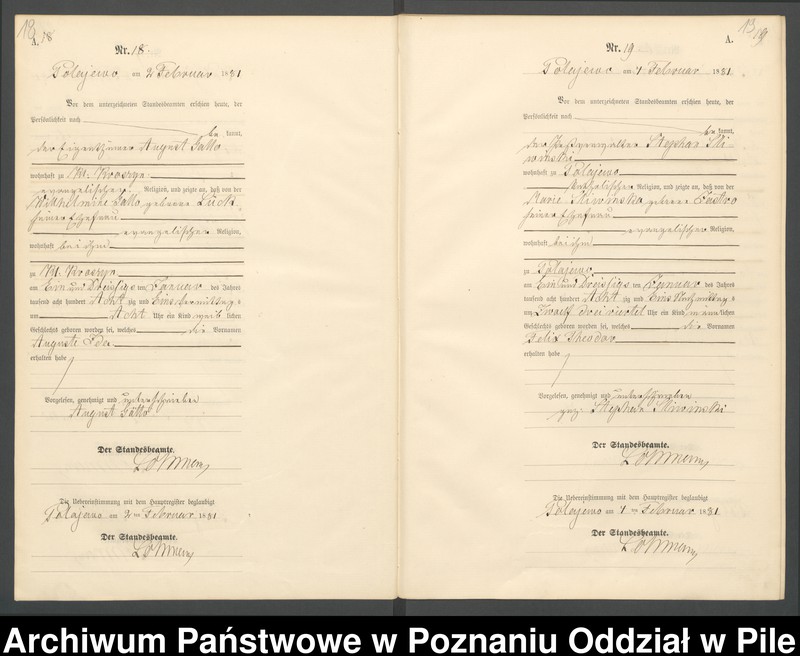 18
A. 18
Nr. 18
Polajewo am 2 Februar 1881
Vor dem unterzeichneten Standesbeamten erschien heute, der
Persönlichkeit nach
be kannt,
der Eigenthümer August Gatto
wohnhaft zu
evangelischer Religion, und zeigte an, daß von der
Wilhelmine Gatto geborene Lück
seiner Ehefrau
evangelischer Religion,
wohnhaft bei ihm
zu
am Ein und Dreißigs ten Januar des Jahres
tausend acht hundert Acht zig und Eins Vormittags
um Acht Uhr ein Kind weib lichen
Geschlechts geboren worden sei, welches die Vornamen
Auguste Ida
erhalten habe
Vorgelesen, genehmigt und unterschrieben
August Gatto
Der Standesbeamte.
Die Uebereinstimmung mit dem Hauptregister beglaubigt
Polajewo am 2 ten Februar 1881
Der Standesbeamte.
13
A. 19
Nr. 19
Polajewo am 4 Februar 1881
Vor dem unterzeichneten Standesbeamten erschien heute, der
Persönlichkeit nach
be kannt,
der Stephan
wohnhaft zu Polajewo
katholischer Religion, und zeigte an, daß von der
Marie geborene
seiner Ehefrau
evangelischer Religion,
wohnhaft bei ihm
zu Polajewo
am Ein und Dreißigs ten Januar des Jahres
tausend acht hundert Acht zig und Eins Nachmittags
um Zwoelf drei viertel Uhr ein Kind männ lichen
Geschlechts geboren worden sei, welches die Vornamen
Felix Theodor
erhalten habe
Vorgelesen, genehmigt und unterschrieben
gez. Stephan
Der Standesbeamte.
Die Uebereinstimmung mit dem Hauptregister beglaubigt
Polajewo am 4 ten Februar 1881
Der Standesbeamte.
Archiwum Państwowe w Poznaniu Oddział w Pile